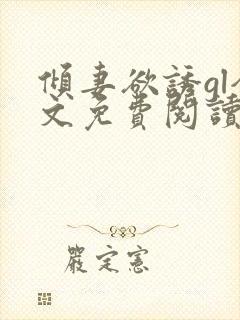 傾妻欲誘gl全
文免費閱讀
嚴定憲